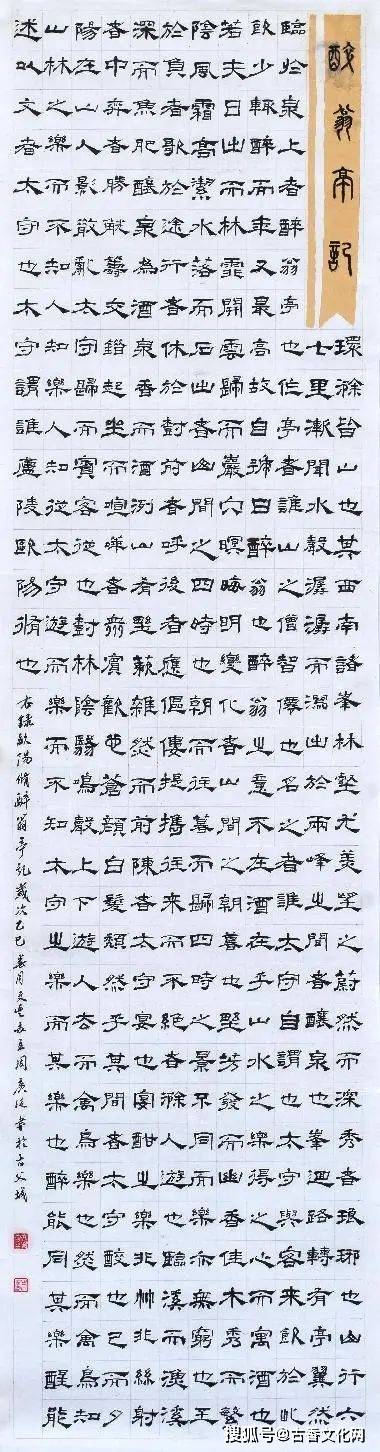 醉翁亭記
環滁皆山也其西南諸峯林壑尤美望之蔚然而深秀者琅琊也山行六
七里漸聞水聲潺潺而瀉出於兩峰之間者釀泉也峯迴路轉有亭翼然
臨於泉上者醉翁亭也作亭者誰山之僧智僊也名之者誰太守自謂也太守與客來飲於此
飲少輒醉而年又最高故自號曰醉翁也醉翁之意不在酒在乎山水之樂得之心而寓酒也
若夫日出而林霏開雲歸而巖穴暝晦明變化者山間之朝暮也野芳發而幽香佳木秀而繁
陰風霜高潔水落而石出者山間之四時也朝而往暮而歸四時之景不同而樂亦無窮也至
於負者歌於途行者休於樹前者呼後者應傴僂提攜往來而不絕者滁人遊也臨溪而漁溪
深而魚肥釀泉為酒泉香而酒冽山肴野蔌雜然而前陳者太守宴也宴酣之樂非竹非絲射
者中弈者勝觥籌交錯起坐而諠譁者眾賓歡也蒼顏白髮頹然乎其間者太守醉也已而夕
陽在山人影散亂太守歸而賓客從也樹林陰翳鳴聲上下遊人去而禽鳥樂也然而禽鳥知
山林之樂而不知人知樂人知從太守遊而樂而不知太守之樂而其樂也醉能同其樂醒能
述以文者太守也太守謂誰廬陵歐陽脩也
右錄歐陽脩醉翁亭記歲次乙巳 書於古父城
搜狐号@古香文化网